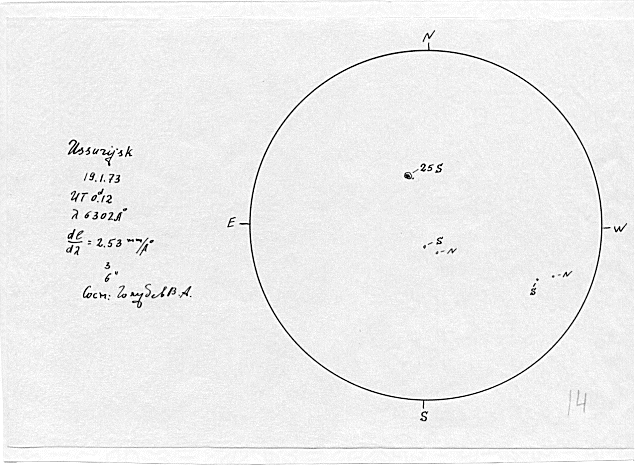 N
Ussurijsk
19.1.73
UT 0.ᵈ12
λ 6302Å
dl/dλ = 2.53 mm/Å
3
6"
Сост: Голубев В.А.
25 S
E
W
S
N
N
S
S
14